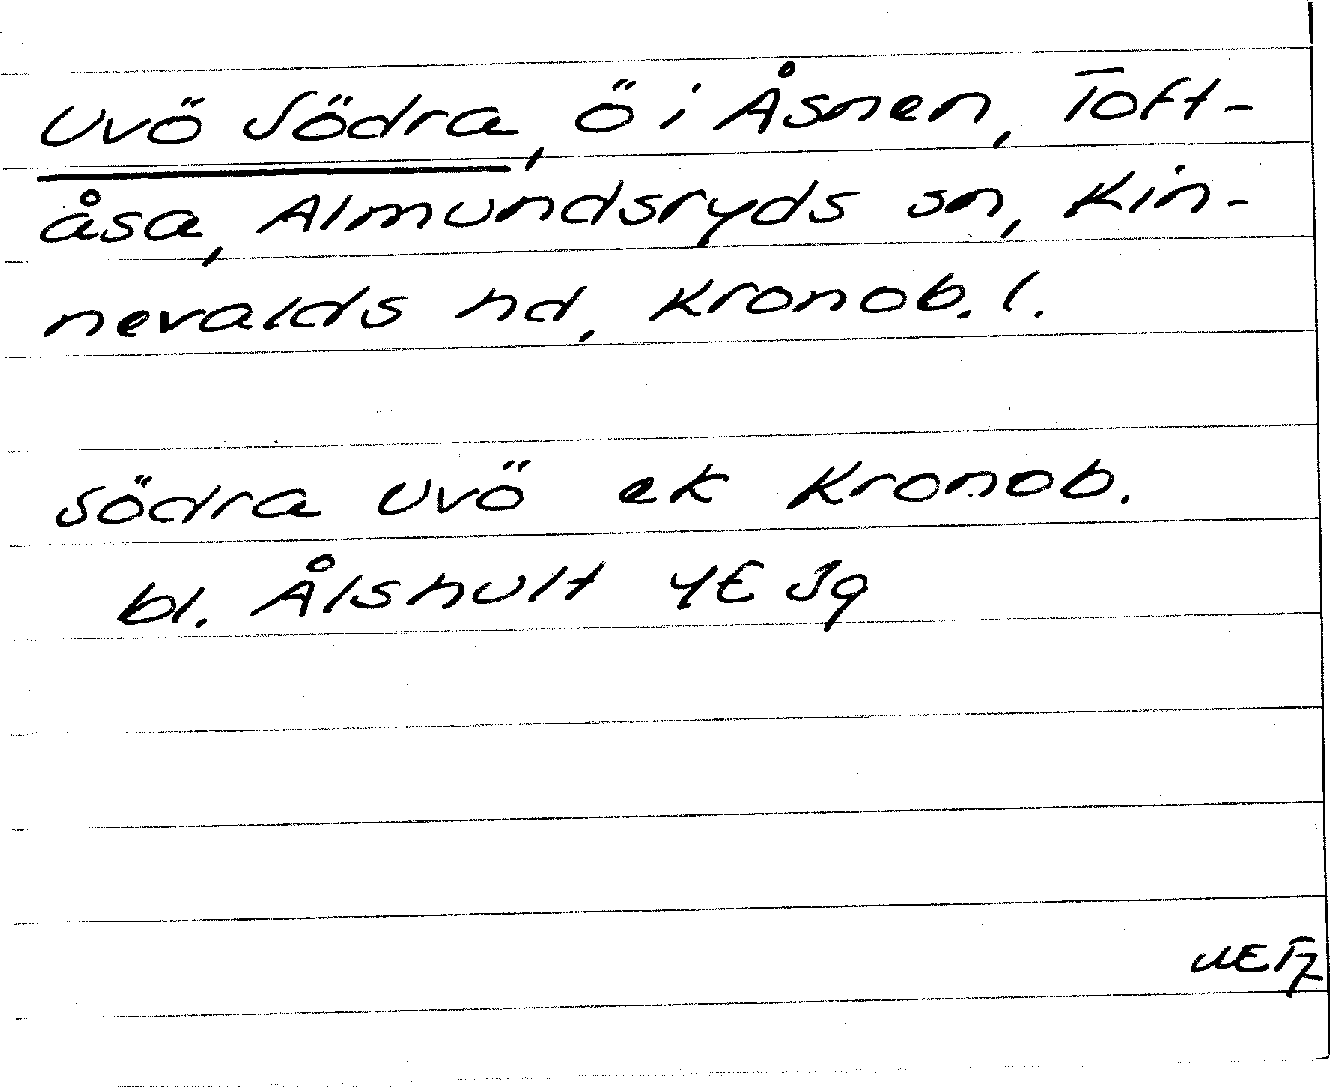 Uvö Södra, ö i Åsnen, Toft-
åsa, Almundsryds sn, Kin-
nevalds hd, Kronob. l.
Södra Uvö ek Kronob.
bl. Ålshult 4E Jg